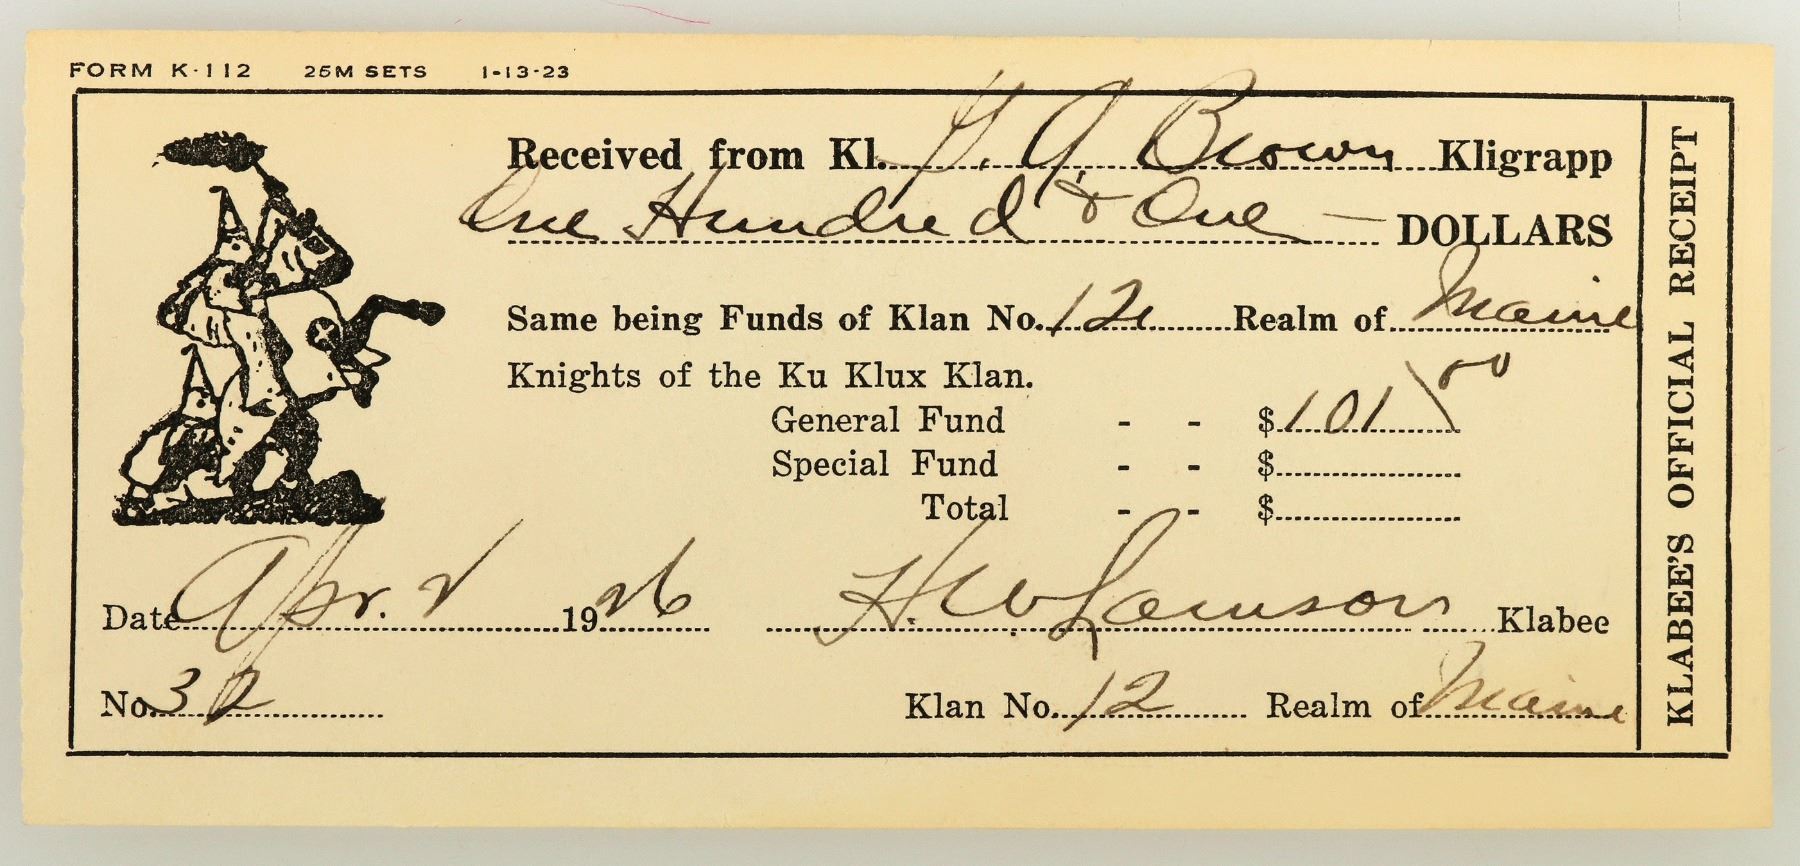 FORM K-112 25M SETS 1-13-23
Received from Kl. G. A Brown Kligrapp
One Hundred & One — DOLLARS
Same being Funds of Klan No. 12 Realm of Maine
Knights of the Ku Klux Klan.
General Fund - - $ 101 00
Special Fund - - $
Total - - $
Date Apr. 2 1926 H. W. Lamson Klabee
No. 32 Klan No. 12 Realm of Maine
KLABEE'S OFFICIAL RECEIPT